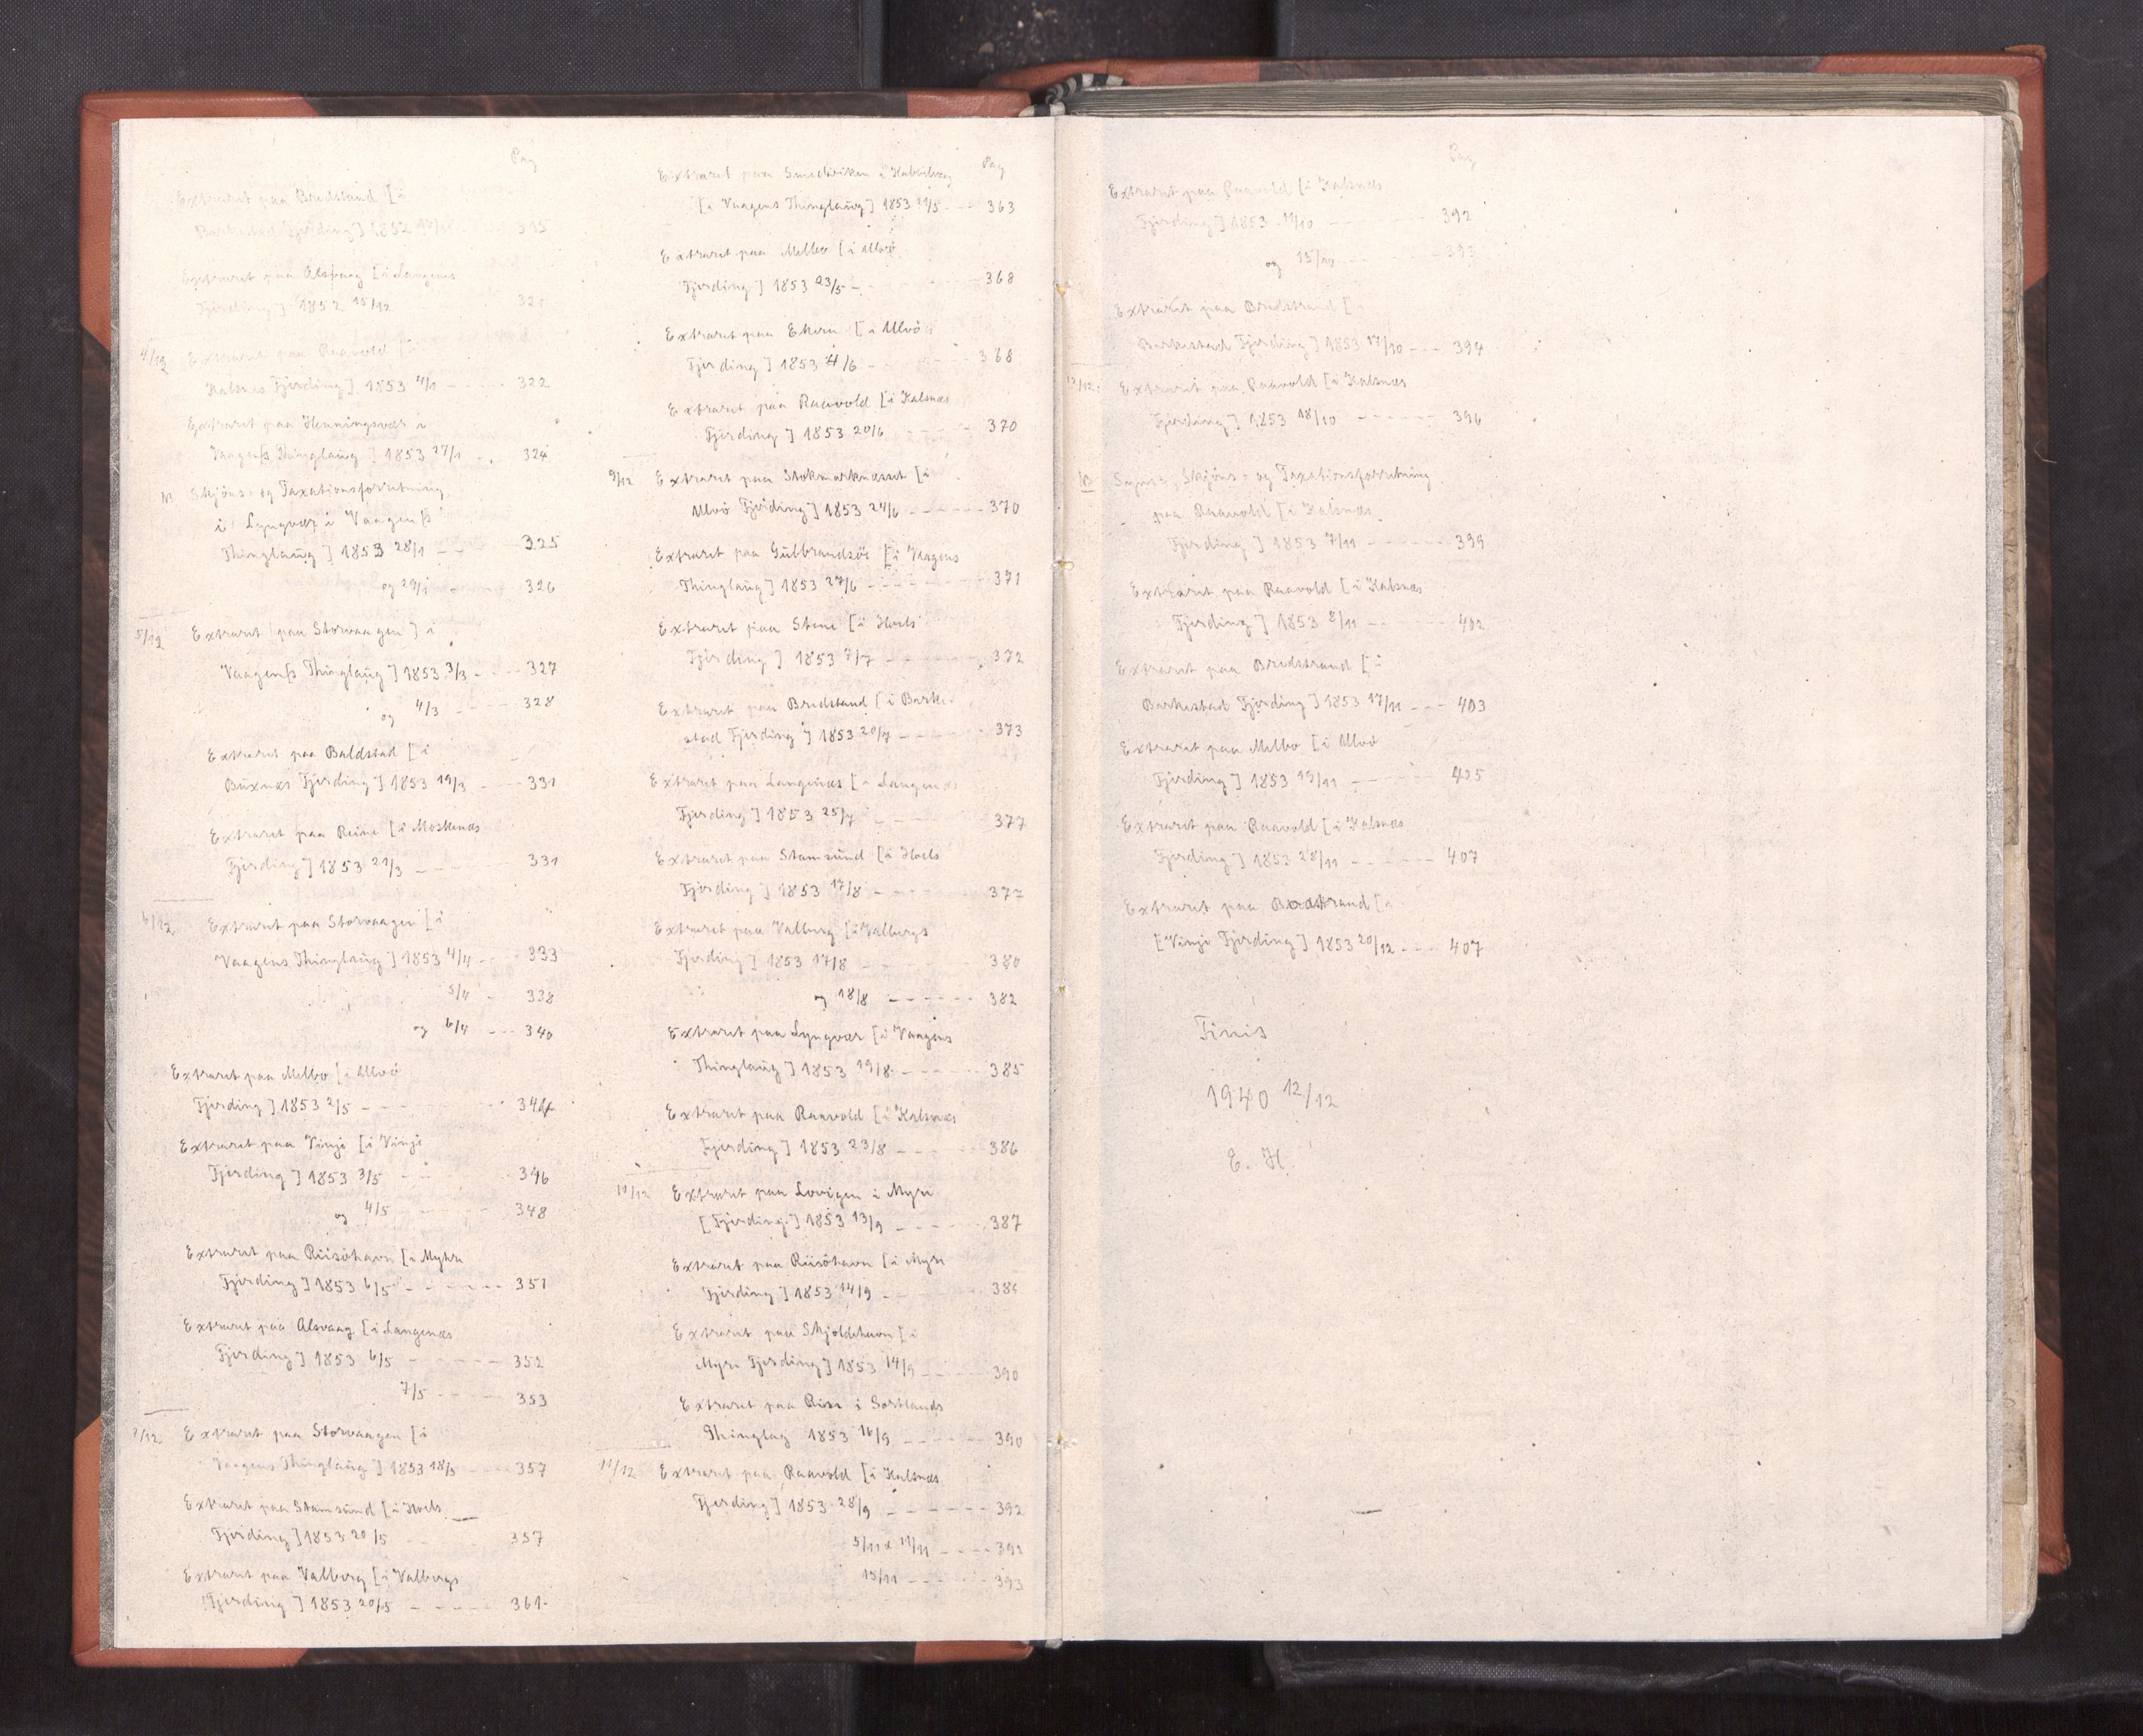 Pag
Extraret paa Bredstand [i
Barkestad Fjerding] 1852 315
Extraret paa Alsvaag [i Langenæs
Fjerding] 1852 15/12 321
4/12 Extraret paa Raavold [i
Kalsnes Fjerding] 1853 4/1 - - - - - 322
Extraret paa Henningsvær i
Vaagenſs Thinglaŭg] 1853 27/1 - . 324
NB Skjöns- og Taxationsforretning
i Lyngvær i Vaagenſs
Thinglaŭg] 1853 28/1 - - - 325
og 29/1 - - - 326
5/12 Extraret [paa Storvaagen] i
Vaagenſs Thinglaŭg] 1853 3/3 - - - - 327
og 4/3 - - - - 328
Extraret paa Baldstad [i
Bŭxnæs Fjerding] 1853 19/3 - - - - 331
Extraret paa Reine [i Moskenæs
Fjerding] 1853 21/3 - - - 331
6/12 Extraret paa Storvaagen [i
Vaagens Thinglaŭg] 1853 4/4 - - - 333
5/4 - 338
og 6/4 - - - 340
Extraret paa Melbo [i Ulvö
Fjerding] 1853 2/5 - - - - 344
Extraret paa Vinje [i Vinje
Fjerding] 1853 3/5 - - - 346
og 4/5 - - - 348
Extraret paa Riisöhavn [i Myhre
Fjerding] 1853 6/5 - - - - - - 351
Extraret paa Alsvaag [i Langenæs
Fjerding] 1853 6/5 - - - - - 352
7/5 - - - - 353
7/12 Extraret paa Storvaagen [i
Vaagens Thinglaŭg] 1853 18/5 - - - 357
Extraret paa Stamsŭnd [i Hoels
Fjerding] 1853 20/5 - - 357
Extraret paa Valberg [i Valbergs
Fjerding] 1853 20/5 - - - - - 361
Pag
Extraret paa Smedviken i Kabbelvaag
[i Vaagens Thinglaŭg] 1853 21/5 - - - 363
Extraret paa Melbo [i Ulvö
Fjerding] 1853 23/5 - - - - 368
Extraret paa Ekren [i Ulvö
Fjerding] 1853 4/6 - - - - 368
Extraret paa Raavold [i Kalsnæs
Fjerding] 1853 20/6 - - - - 370
9/12 Extraret paa Stokmarknæsset [i
Ulvö Fjerding] 1853 24/6 - - - - - 370
Extraret paa Gŭlbrandsöe [i Vaagens
Thinglaŭg] 1853 27/6 - - - - - - 371
Extraret paa Stene [i Hoels
Fjerding] 1853 7/7 - - - - - 372
Extraret paa Bredstand [i Barke-
stad Fjerding] 1853 20/7 - - - - - 373
Extraret paa Langenæs [i Langenæs
Fjerding] 1853 25/7 - - 377
Extraret paa Stamsŭnd [i Hoels
Fjerding] 1853 17/8 - - - - - 377
Extraret paa Valberg [i Valbergs
Fjerding] 1853 17/8 - - - - - 380
og 18/8 - - - - - - 382
Extraret paa Lyngvær [i Vaagens
Thinglaŭg] 1853 19/8 - - - - - 385
Extraret paa Raavold [i Kalsnæs
Fjerding] 1853 23/8 - - - - - 386
10/12 Extraret paa Lovigen i Myre
[Fjerding] 1853 13/9 - - - - - 387
Extraret paa Riisöhavn [i Myre
Fjerding] 1853 14/9 - - - 389
Extraret paa Skjoldehavn [i
Myre Fjerding] 1853 14/9 - - - - 390
Extraret paa Rise i Sortlands
Thinglag 1853 16/9 - - - - - 390
11/12 Extraret paa Raavold [i Kalsnæs
Fjerding] 1853 28/9 - - - - - - 392
5/11 & 11/11 - - - - 392
15/11 - - - - - - 393
Pag
Extraret paa Raavold [i Kalsnæs
Fjerding] 1853 11/10 - - - - 392
og 15/10 - - - - 393
Extraret paa Bredstrand [i
Barkestad Fjerding] 1853 17/10 - - - 394
12/12 Extraret paa Raavold [i Kalsnæs
Fjerding] 1853 18/10 - - - - - - 396
NB Syns-, Skjöns- og Taxationsforretning
paa Raavold [i Kalsnæs
Fjerding] 1853 7/11 - - - - - - 399
Extraret paa Raavold [i Kalsnæs
Fjerding] 1853 8/11 - - - - - 402
Extraret paa Bredstrand [i
Barkestad Fjerding] 1853 17/11 - - - 403
Extraret paa Melbo [i Ulvö
Fjerding] 1853 19/11 - - - - - 405
Extraret paa Raavold [i Kalsnæs
Fjerding] 1853 28/11 - - - - - - 407
Extraret paa Bredstrand [i
[Vinje Fjerding] 1853 20/12 - - - 407
Finis
1940 12/12
E. H.